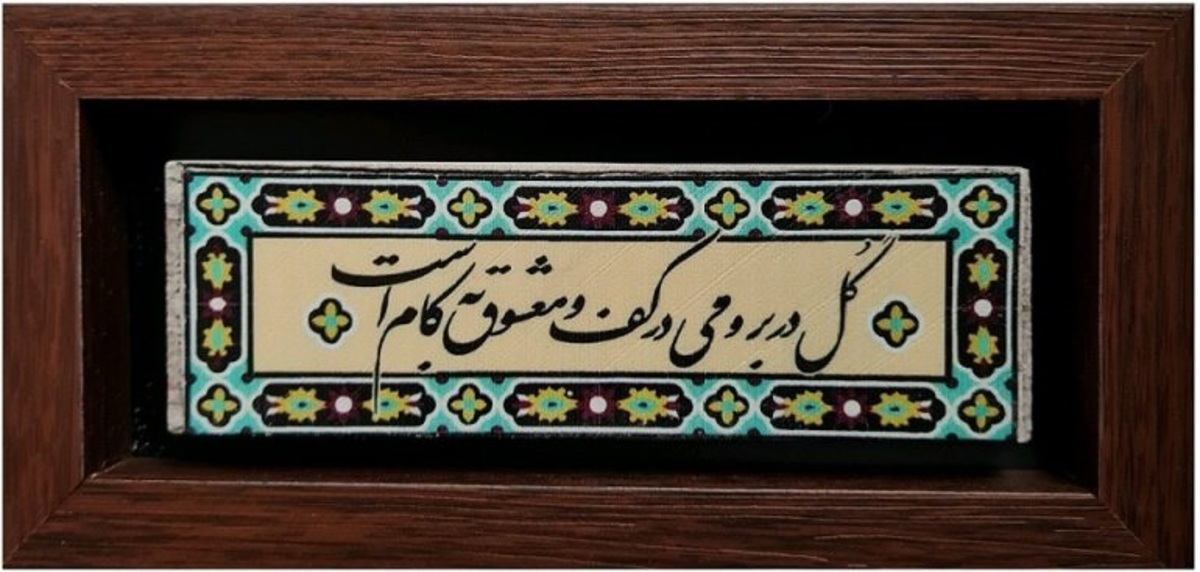 گُل در بر و می در کف و معشوق به کام است